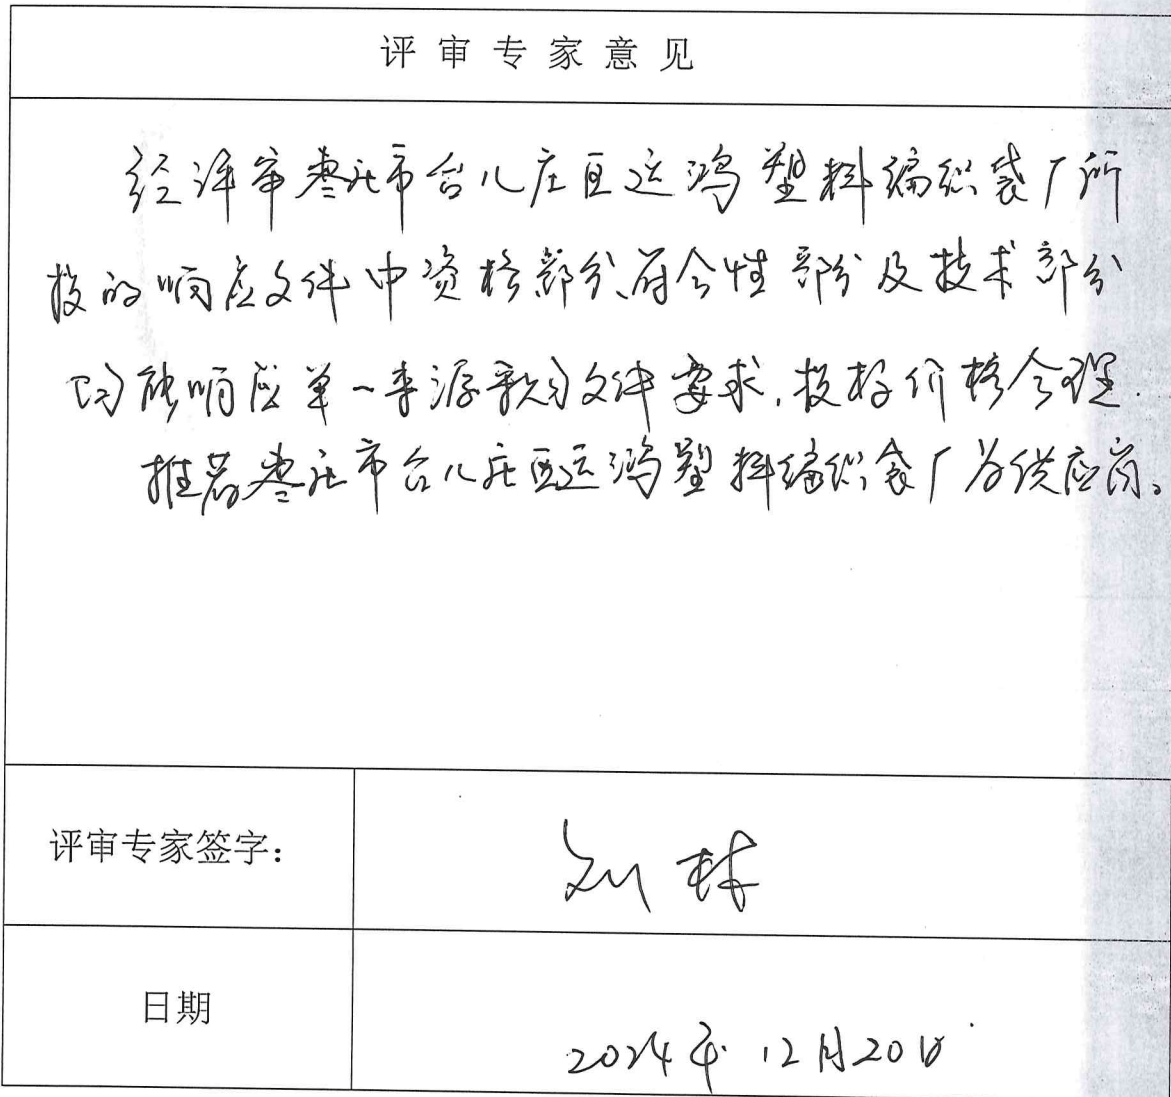 评审专家意见
经评审枣庄市台儿庄区运鸿塑料编织袋厂所
投的响应文件中资格部分、符合性部分及技术部分
均能响应单一来源采购文件要求,投标价格合理.
推荐枣庄市台儿庄区运鸿塑料编织袋厂为供应商。
评审专家签字:
刘林
日期
2024年12月20日